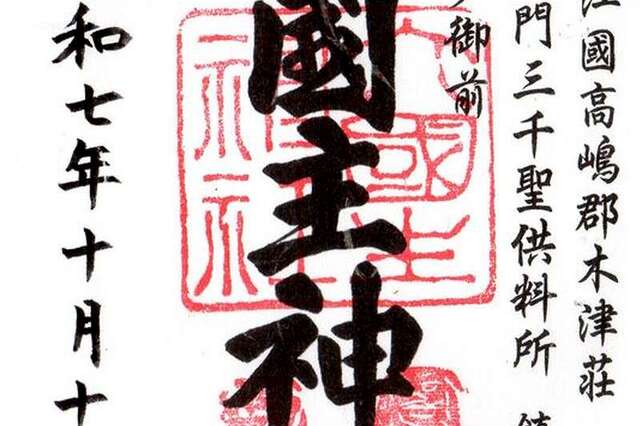 國高嶋郡木津荘
門三千聖供料所
御前
國主神
和七年十月十